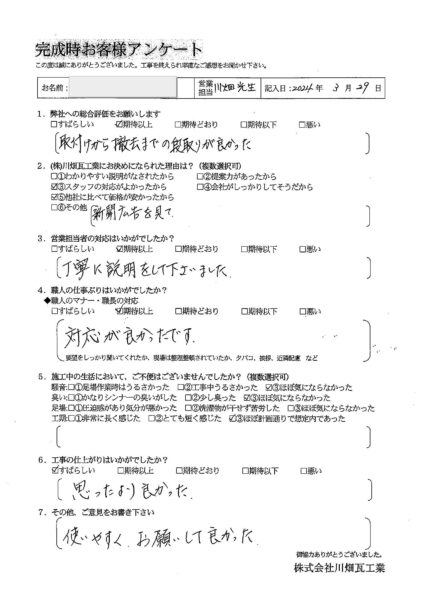 完成時お客様アンケート
この度は誠にありがとうございました。工事を終えられ率直なご感想をお聞かせ下さい。
お名前: 営業担当 川畑 光生 記入日:2024年 3月29日
1. 弊社への総合評価をお願いします
□すばらしい ☑期待以上 □期待どおり □期待以下 □悪い
取付けから撤去までの段取りが良かった
2. (株)川畑瓦工業にお決めになられた理由は?(複数選択可)
□①わかりやすい説明がなされたから □②提案力があったから
☑③スタッフの対応がよかったから □④会社がしっかりしてそうだから
☑⑤他社に比べて価格が安かったから
□⑥その他 新聞広告を見て
3. 営業担当者の対応はいかがでしたか?
□すばらしい ☑期待以上 □期待どおり □期待以下 □悪い
丁寧に説明をして下さいました
4. 職人の仕事ぶりはいかがでしたか?
◆職人のマナー・職長の対応
□すばらしい ☑期待以上 □期待どおり □期待以下 □悪い
対応が良かったです.
要望をしっかり聞いてくれたか、現場は整理整頓されていたか、タバコ、挨拶、近隣配慮 など
5. 施工中の生活において、ご不便はございませんでしたか?(複数選択可)
騒音:□①足場作業時はうるさかった □②工事中うるさかった ☑③ほぼ気にならなかった
臭い:□①かなりシンナーの臭いがした □②少し臭った ☑③ほぼ気にならなかった
足場:□①圧迫感があり気分が悪かった □②洗濯物が干せず苦労した □③ほぼ気にならなかった
工期:□①非常に長く感じた □②とても短く感じた ☑③ほぼ計画通りで想定内であった
6. 工事の仕上がりはいかがでしたか?
☑すばらしい □期待以上 □期待どおり □期待以下 □悪い
思ったより良かった
7. その他、ご意見をお書き下さい
使いやすく、お願いして良かった.
御協力ありがとうございました。
株式会社川畑瓦工業